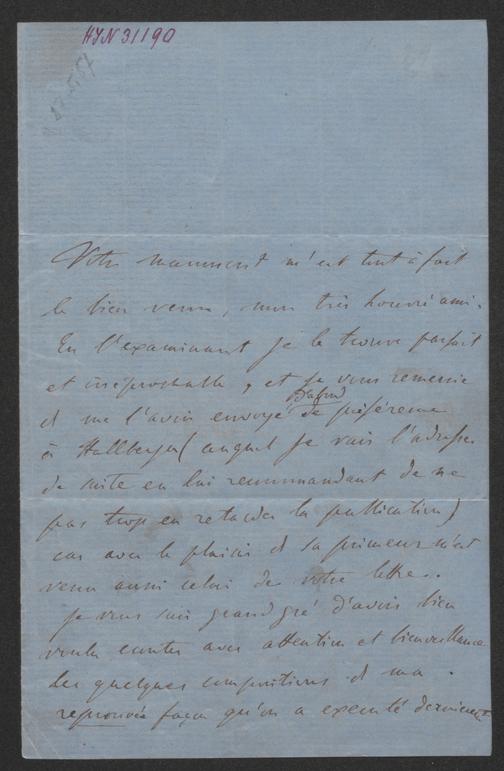 HJN 31190
Votre manuscrit m'est tout à fait
le bien venu, mon très honoré ami.
En l'examinant je le trouve parfait
et irréprochable, et je vous remercie
d me l'avoir envoyé d'abord de préférence
à Hallberger (auquel je vais l'adresser
de suite en lui recommandant de ne
pas trop en retarder la publication)
car avec le plaisir d sa primeur m'est
venu aussi celui de votre lettre.
Je vous sais grand gré d'avoir bien
voulu écouter avec attention et bienveillance
les quelques compositions d ma
reprouvée façon qu'on a executé dernièremt